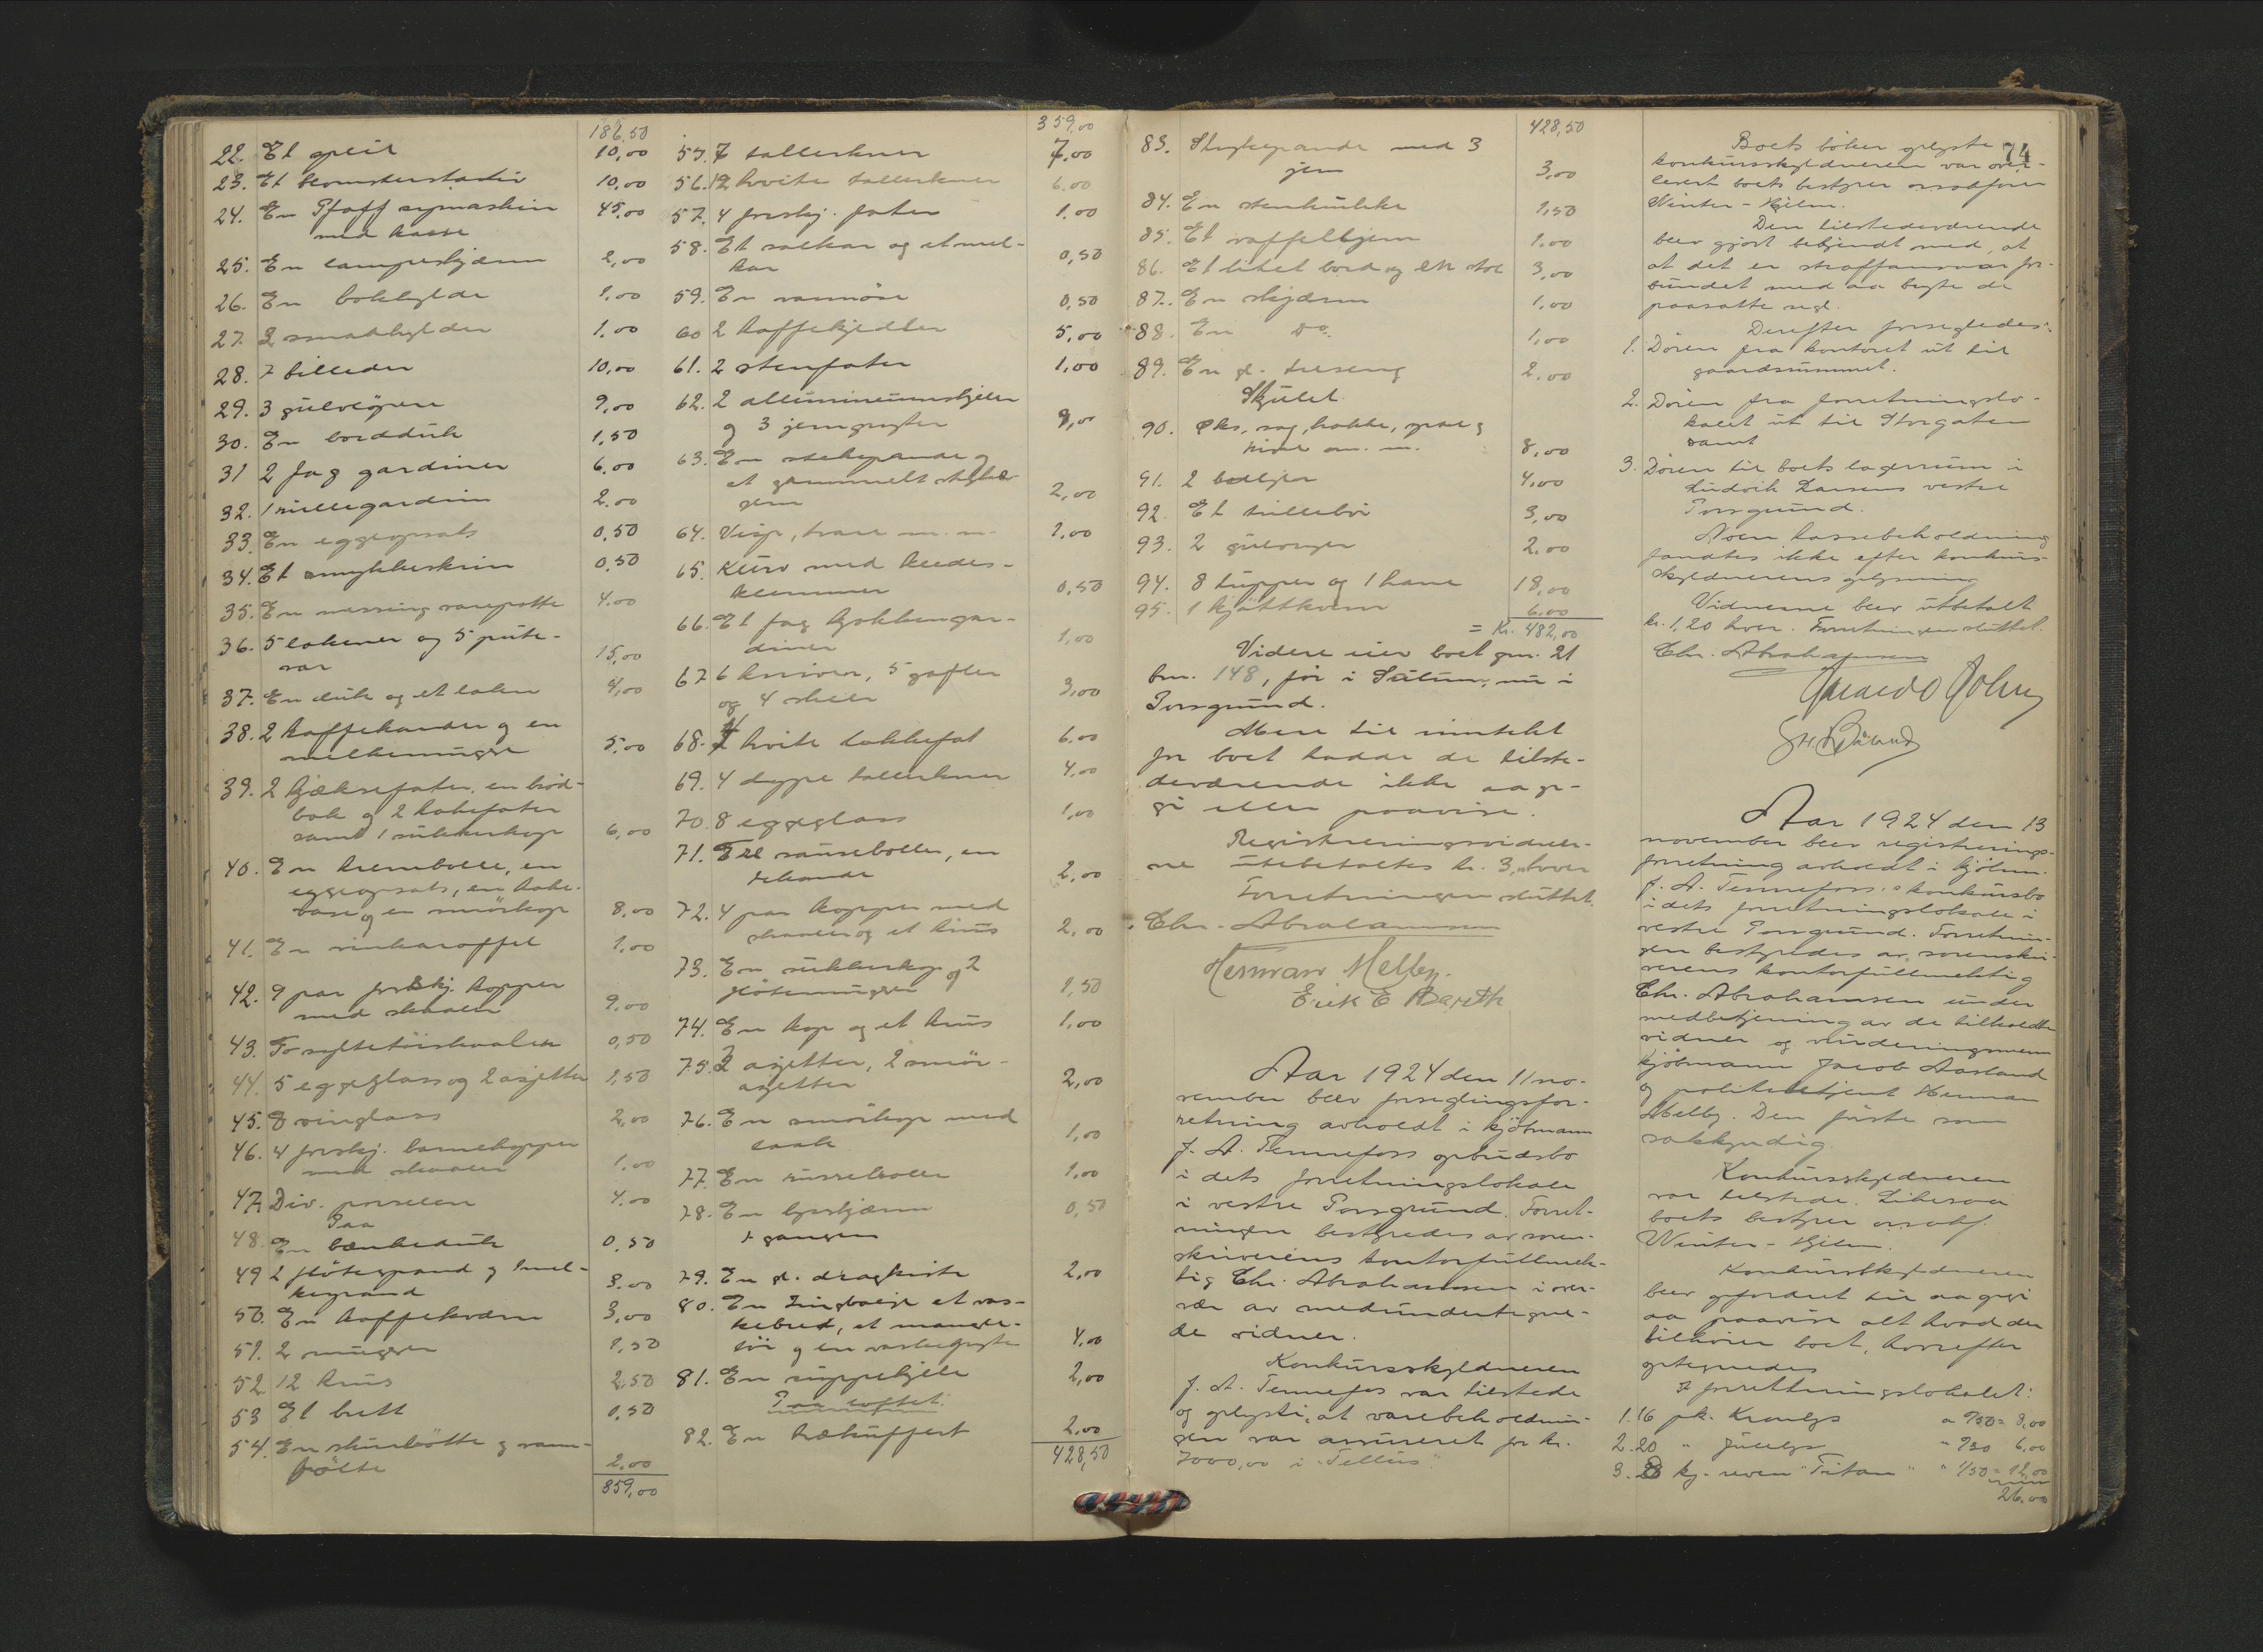 186,50
22. Et speil 10,00
23. Et blomsterstativ 10,00
24. En Pfaff symaskin
med kasse 45,00
25. En lampeskjærm 2,00
26. En bokhylde 1,00
27. 3 smaahylder 1,00
28. 7 billeder 10,00
29. 3 gulvløpere 9,00
30. En bordduk 1,50
31 2 fag gardiner 6,00
32. 1 rullegardin 2,00
33. En eggeopsats 0,50
34. Et smykkeskrin 0,50
35. En messing vasepotte 4.00
36. 5 lakener og 5 pute-
var 15,00
37. En duk og et laken 4,00
38. 2 kaffekander og en
melkemugge 5,00
39. 2 kjæksefater, en brød-
bak og 2 kakefater
samt 1 sukkerkop 6,00
40. En krembolle, en
eggeopsats, en kake-
vase og en smørkop 8,00
41. En vinkaraffel 1,00
42. 9 par forskj. kopper
med skaaler 9,00
43. To syltetøiskaaler 0,50
44. 5 eggeglass og 2 asjetter 1,50
45. 8 vinglass 2,00
46. 4 forskj. barnekopper
med skaaler 1,00
47. Div. porselen 4.00
48. En bænkeduk 0,50
49 2 fløtespand og 1 mel-
kespand 3.00
50. En kaffekværn 3,00
51. 2 mugger 1,50
52 12 krus 2,50
53 Et brett 0,50
54. En skurebøtte og vann-
bøtte 2.00
359,00
359,00
55. 7 tallerkner 7,00
56. 12 hvite tallerkner 6.00
57. 4 forskj. fater 1.00
58. Et saltkar og et mel-
kar 0,50
59. En vannøse 0,50
60 2 kaffekjedler 5,00
61. 2 stenfater 1,00
62. 2 alluminiumskjeler
og 3 jerngryter 8,00
63. En stekepande og
et gammelt
2,00
64. Visp, traae m. m. 1,00
65. Kurv med klædes-
klemmer 0,50
66. Et fag kjøkkengar-
diner 1,00
67 6 kniver, 5 gafler
og 4 skeer 3,00
68. 4 hvite lokkefat 6.00
69. 4 dype tallerkner 4,00
70. 8 eggeglass 1,00
71. En sausebolle, en
tekande 2,00
72. 4 par kopper med
skaaler og et krus 2,00
73. En sukkerkop og 2
fløtemugger 1,50
74. En kop og et krus 1,00
75. 2 asjetter, 2 smør-
asjetter 2,00
76. En smørkop med
laak 1,00
77. En bolle 1,00
78. En lysskjærm 0,50
I gangen
79. En gl. dragkiste 2,00
80. En zinkbalje et vas-
kebret, et
og en vaskegryte 4,00
81. En suppekjele 2,00
Paa loftet.
82. En trækuffert 2.00
428,50
428,50
83. Strykepande med 3
jern 3,00
84. En stenkrukke 1,50
85. Et vaffeljern 1.00
86. Et litet bord og en stol 3,00
87. En skjærm 1,00
88. En do. 1,00
89. En gl. treseng 2.00
Skjulet.
90. Øks, sag, hakke, spae og
m. m. 8,00
91. 2 baljer 4,00
92. Et trillebør 3,00
93. 2 2.00
94. 8 tupper og 1 hane 18,00
95. 1 kjøttkværn 6,00
= Kr. 482,00
Videre eier boet gnr. 21
bnr. 148, før i Solum, nu i
Porsgrund.
Mere til inntekt
for boet hadde de tilste-
deværende ikke aa op-
gi eller paavise.
Registreringsvidner-
ne utbetaltes kr. 3, hver
Forretningen sluttet.
Chr. Abrahamsen
Herman Melby.
Erik E Barth
Aar 1924 den 11 no-
vember blev forseglingsfor-
retning avholdt i kjøbmann
J. A. Tennefoss opbudsbo
i dets forretningslokale
i vestre Porsgrund. Forret-
ningen bestyredes av soren-
skriverens kontorfullmek-
tig Chr. Abrahamsen i over-
vær av medundertegne-
de vidner.
Konkursskyldneren
J. A. Tennefos var tilstede
og oplyste, at varebeholdnin-
gen var assureret for kr.
7000,00 i "Tellus".
74
Boets bøker oplyste
konkursskyldneren var over-
levert boets bestyrer orsakfører
Winter-Hjelm.
Den tilstedeværende
blev gjort bekjendt med, at
at det er straffansvar for-
bundet med aa bryte de
paasatte segl.
Derefter forsegledes:
1. Døren fra kontoret ut til
gaardsrummet.
2. Døren fra forretningslo-
kalet ut til Storgaten
samt
3. Døren til boets lagerrum i
Ludvik Larsens vestre
Porsgrund.
Noen kassebeholdning
fandtes ikke efter konkurs-
skyldnerens oplysning
Vidnerne blev utbetalt
kr. 1,20 hver. Forretningen sluttet.
Chr. Abrahamsen
Aar 1924 den 13
november blev registrerings-
forretning avholdt i kjøbm.
J. A. Tennefoss's konkursbo
i dets forretningslokale i
vestre Porsgrund. Forretnin-
gen bestyredes av sorenskri-
verens kontorfullmektig
Chr. Abrahamsen under
medbetjening av de tilkaldte
vidner og vurderingsmenn
kjøbmann Jacob Aasland
og politibetjent Herman
Melby. Den første som
sakkyndig.
Konkursskyldneren
var tilstede. Likesaa
boets bestyrer orsakf.
Winter-Hjelm.
Konkursskyldneren
blev opfordret til aa opgi
aa paavise alt hvad der
tilhører boet, hvorefter
optegnedes
I forretningslokalet:
1. 16 pk. Kronlys a 0/50 = 8,00
2. 20 " Julelys " 0/30 6,00
3. 8 kg. reven "Tritan" " 1/50 = 12,00
26.00